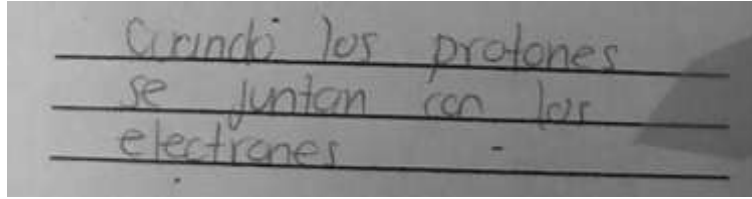 Cuando los protones
se juntan con los
electrones